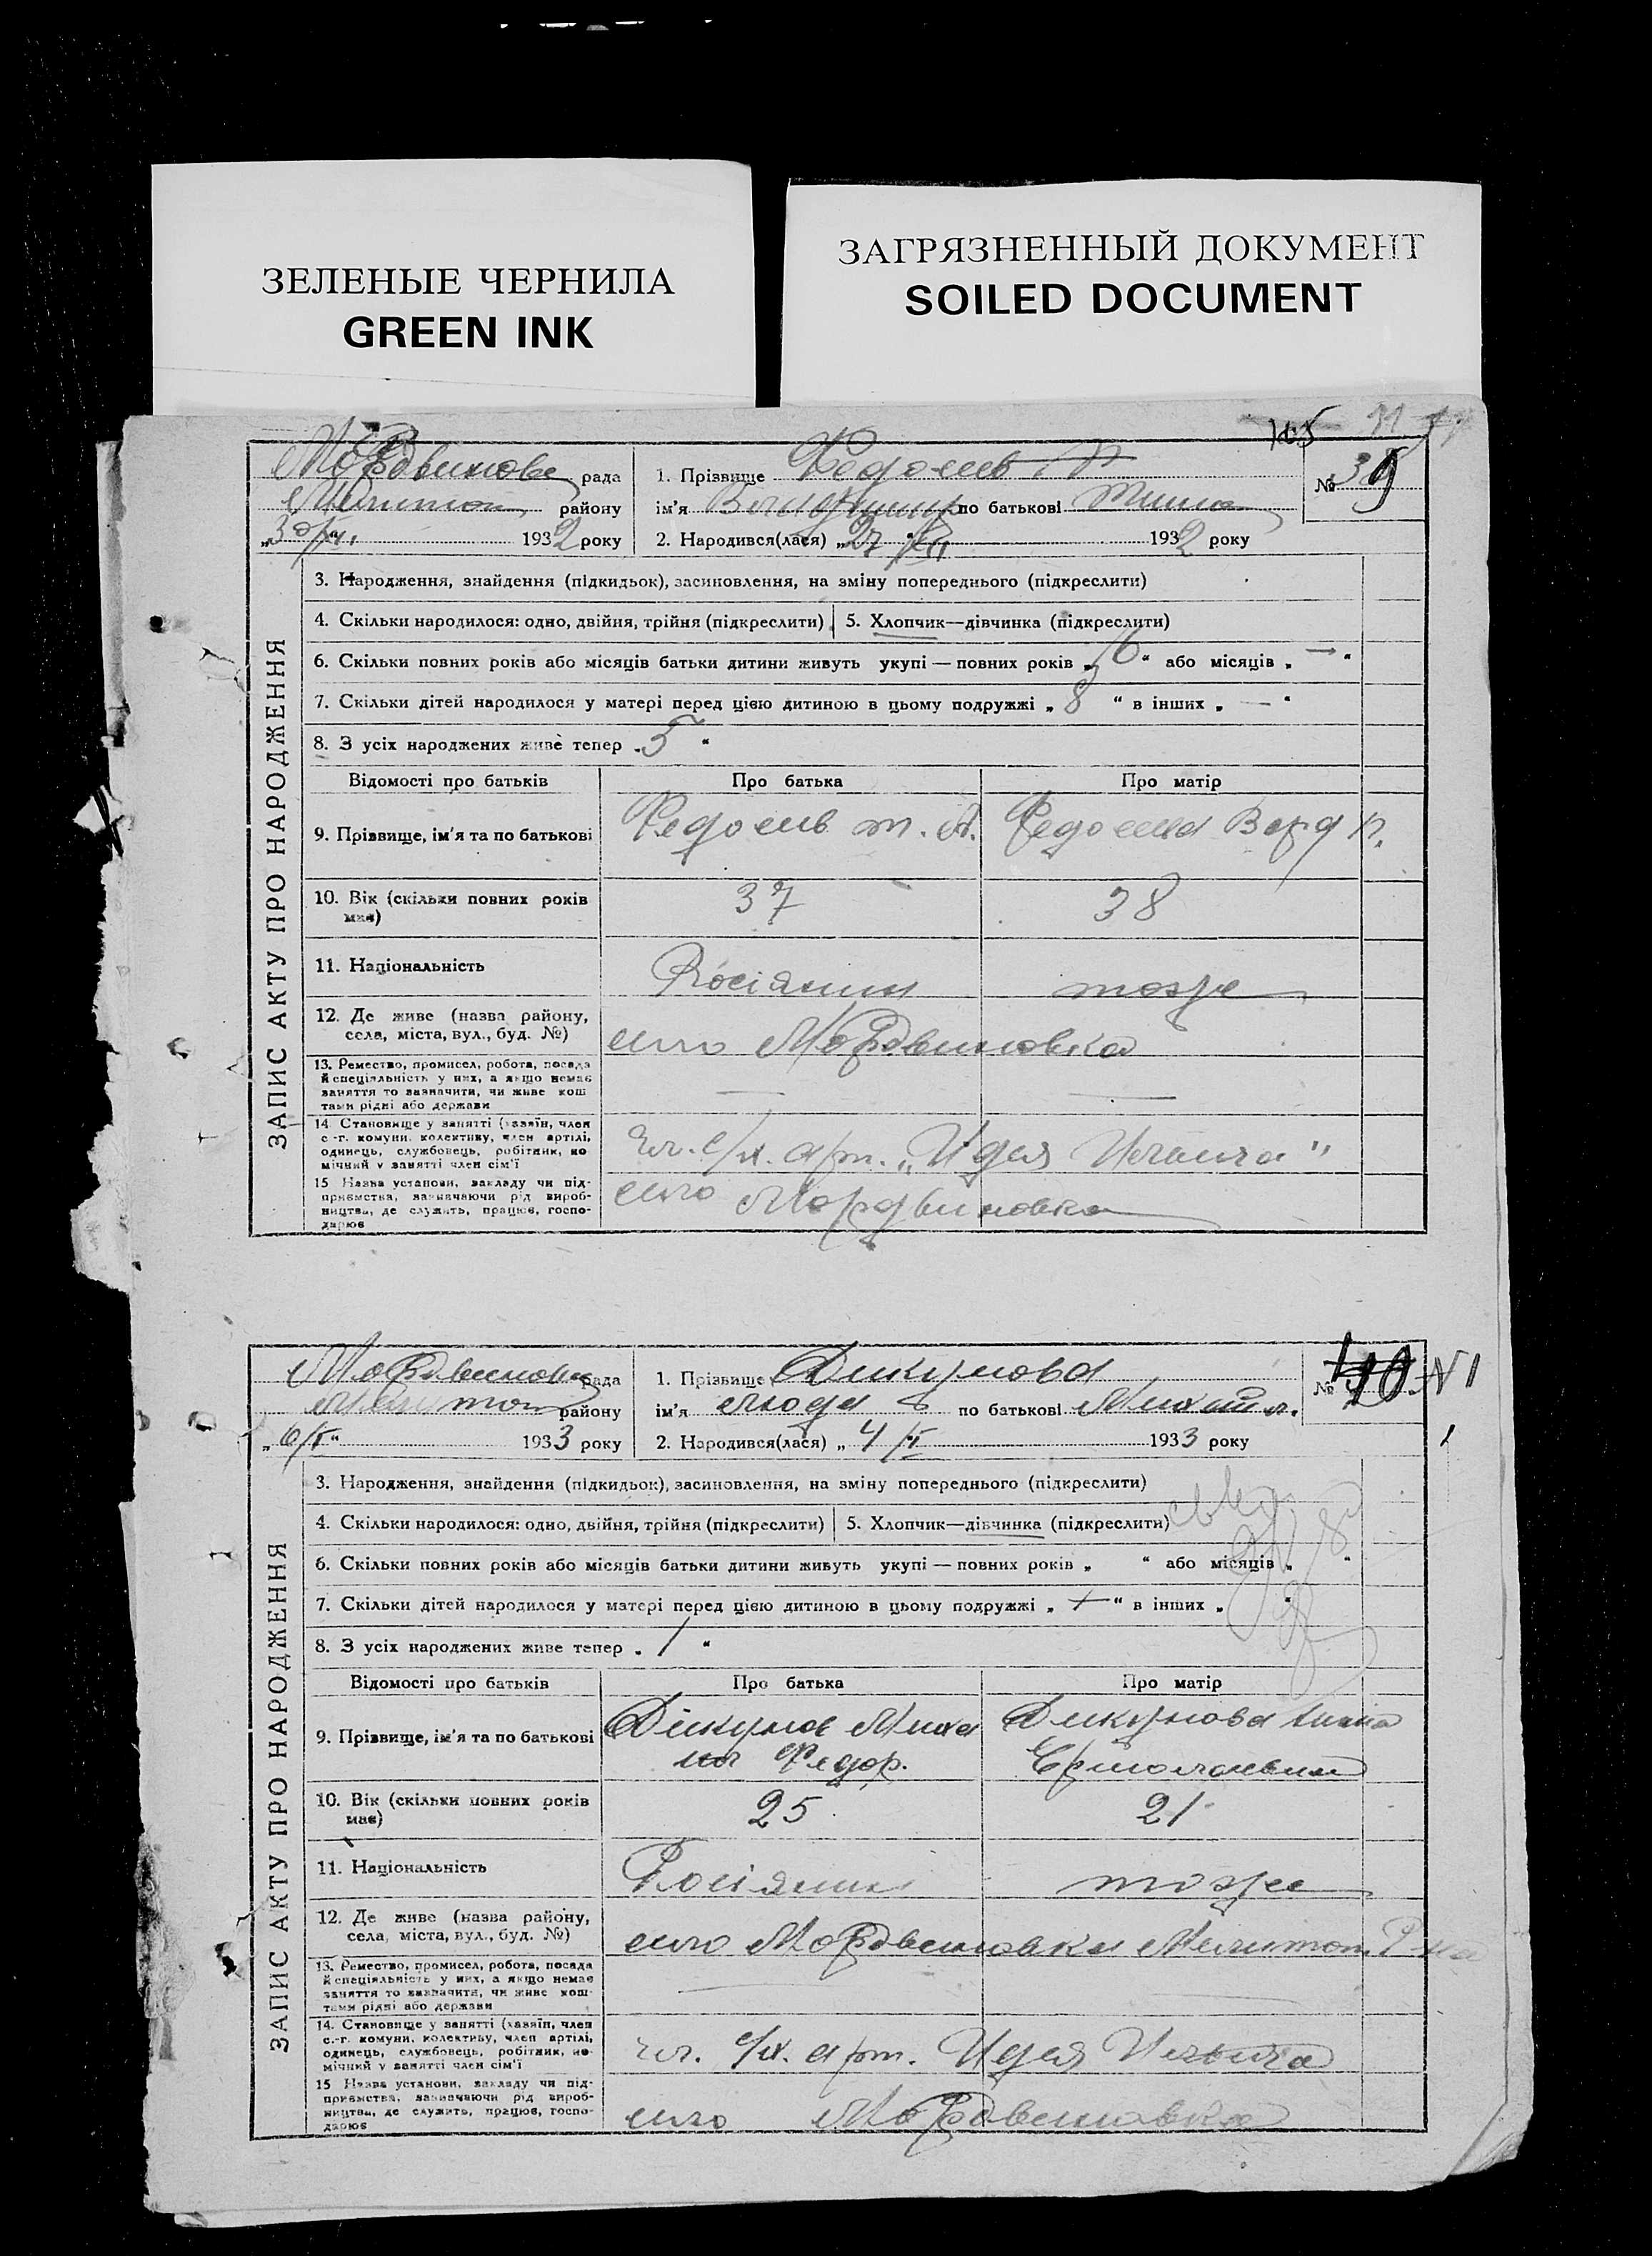 ЗЕЛЕНЫЕ ЧЕРНИЛА
GREEN INK
ЗАГРЯЗНЕННЫЙ ДОКУМЕНТ
SOILED DOCUMENT
105
ЗАПИС АКТУ ПРО НАРОДЖЕННЯ
Мордвинове рада
Мелитоп району
„30/XII" 1932 року
1. Прізвище
ім'я по батькові
№ 39
2. Народився(лася) „27/XII 1932 року
3. Народження, знайдення (підкидьок), засиновлення, на зміну попереднього (підкреслити)
4. Скільки народилося: одно, двійня, трійня (підкреслити)
5. Хлопчик—дівчинка (підкреслити)
6. Скільки повних років або місяців батьки дитини живуть укупі — повних років „16" або місяців „—"
7. Скільки дітей народилося у матері перед цією дитиною в цьому подружжі „8" в інших „—"
8. З усіх народжених живе тепер „5"
Відомості про батьків Про батька Про матір
9. Прізвище, ім'я та по батькові
10. Вік (скільки повних років має) 37 38
11. Національність Росіянин тоже
12. Де живе (назва району, села, міста, вул., буд. №) село Мордвиновка
13. Ремество, промисел, робота, посада
й спеціяльність у них, а якщо немає
заняття то зазначити, чи живе кош
тами рідні або держави
14. Становище у занятті (хазяїн, член
с.-г. комуни, колективу, член артілі,
одинець, службовець, робітник, по
мічний у занятті член сім'ї
чл. с/х. арт. „Идея Ильича"
15 Назва установи, закладу чи під-
приємства, зазначаючи рід вироб-
ництва, де служить, працює, госпо-
дарює
село Мордвиновка
ЗАПИС АКТУ ПРО НАРОДЖЕННЯ
Мордвиновка рада
Мелитоп району
„6/I" 1933 року
1. Прізвище Дикунова
ім'я Люда по батькові Михайл.
№ 40 N1
2. Народився(лася) „4/I 1933 року
3. Народження, знайдення (підкидьок), засиновлення, на зміну попереднього (підкреслити)
4. Скільки народилося: одно, двійня, трійня (підкреслити)
5. Хлопчик—дівчинка (підкреслити)
6. Скільки повних років або місяців батьки дитини живуть укупі — повних років „ " або місяців „ "
7. Скільки дітей народилося у матері перед цією дитиною в цьому подружжі „ " в інших „ "
8. З усіх народжених живе тепер „1"
Відомості про батьків Про батька Про матір
9. Прізвище, ім'я та по батькові Дикунов Миха Дикунова
ил Федор.
10. Вік (скільки повних років має) 25 21
11. Національність Росіянин тоже
12. Де живе (назва району, села, міста, вул., буд. №) село Мордвиновка Мелитоп. Р-на
13. Ремество, промисел, робота, посада
й спеціяльність у них, а якщо немає
заняття то зазначити, чи живе кош-
тами рідні або держави
14. Становище у занятті (хазяїн, член
с.-г. комуни, колективу, член артілі,
одинець, службовець, робітник, по-
мічний у занятті член сім'ї
чл. с/х. арт. Идея Ильича
15 Назва установи, закладу чи під-
приємства, зазначаючи рід вироб-
ництва, де служить, працює, госпо-
дарює
село Мордвиновка